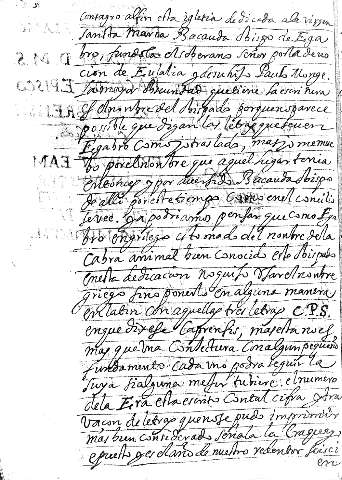 consagro al fin esta iglesia dedicada a la virgen
sancta Maria Bacauda obispo de Ega
bro, fundola el soberano señor por la devo
cion de Eulalia y de su hijo Paulo Monge.
La mayor dificultad que tiene la escritura
es el nombre del obispado porque no parece
possible que digan las letras que quieren
Egabro como yo traslado, mas yo me mue
bo por el nombre que aquel lugar tenia
entonces y por aver sido Bacauda obispo
de alli por este tiempo como en el concilio
se vee. Ya podriamos pensar que como Ega
bro en griego es tomado del nombre de la
Cabra animal bien conocido este obispado
en esta dedicacion no quiso usar el nombre
griego sino ponerlo en alguna manera
en latin con aquellas tres letras C.P.S.
en que dixese Caprensis, mas esta no es
mas que una conjectura con algun pequeño
fundamento. Cada uno podra seguir la
suya si alguna mejor tubiere. el numero
de la Era esta escrito con tal cifra y tra
vacon de letras que no se pudo imprimir
mas bien considerado señala la Era que yo
e puesto que es el año de nuestro redentor seisci
en
D M S
EPISC
EAM